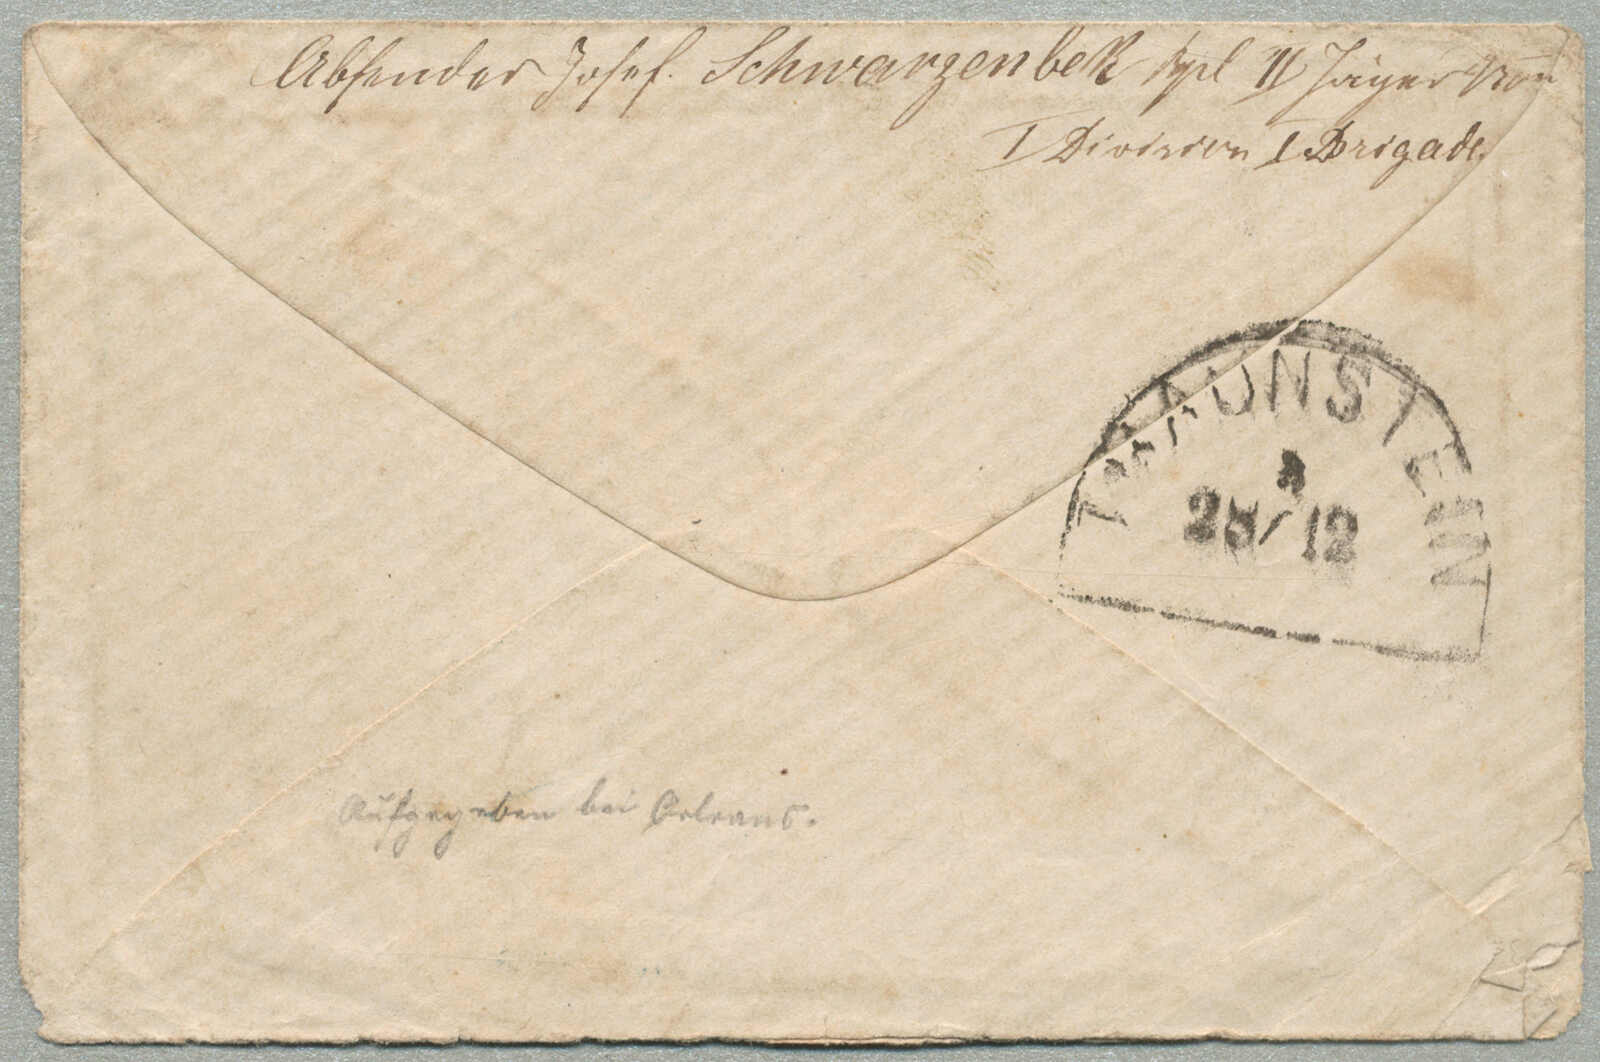 Absender Josef. Schwarzenbek II Jäger
I Division I Brigade
TRAUNSTEIN
28/12
Aufgegeben bei Orleans.